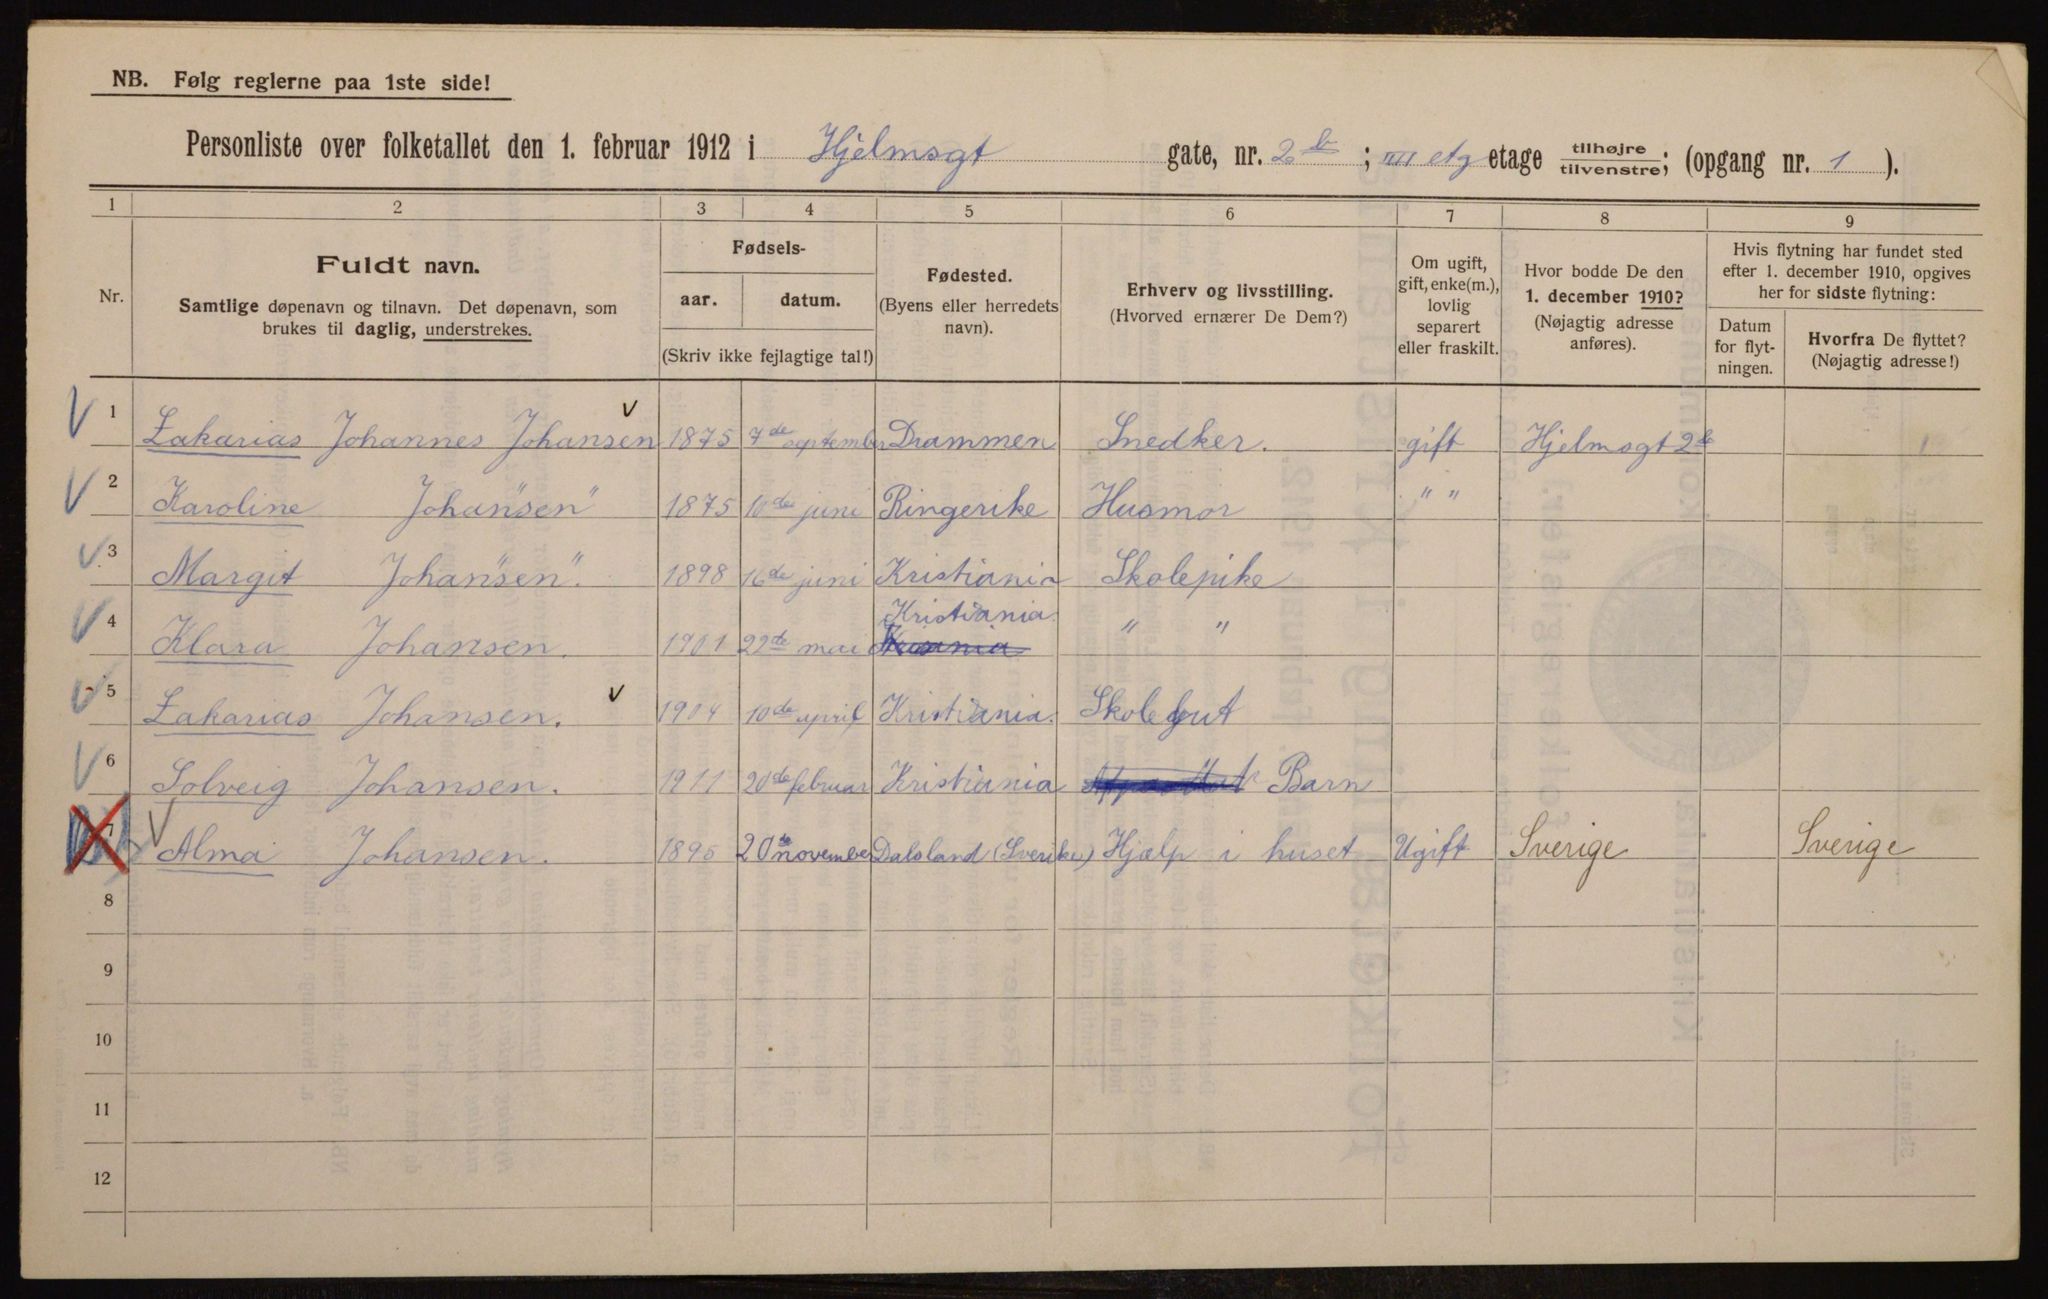 NB. Følg reglerne paa 1ste side!
Personliste over folketallet den 1. februar 1912 i Hjelmsgt gate, nr. 2b ; IIII etg etage tilhøjre/tilvenstre; (opgang nr. 1 ).
1 2 3 4 5 6 7 8 9
Nr.
Fuldt navn.
Samtlige døpenavn og tilnavn. Det døpenavn, som
brukes til daglig, understrekes.
Fødsels-
aar. datum.
(Skriv ikke fejlagtige tal!)
Fødested.
(Byens eller herredets
navn).
Erhverv og livsstilling.
(Hvorved ernærer De Dem?)
Om ugift,
gift, enke(m.),
lovlig
separert
eller fraskilt.
Hvor bodde De den
1. december 1910?
(Nøjagtig adresse
anføres).
Hvis flytning har fundet sted
efter 1. december 1910, opgives
her for sidste flytning:
Datum
for flyt-
ningen.
Hvorfra De flyttet?
(Nøjagtig adresse!)
1 Zakarias Johannes Johansen 1875 7de september Drammen Snedker. gift Hjelmsgt 2b
2 Karoline Johansen " 1875 10de juni Ringerike Husmor " "
3 Margit Johansen ". 1898 16de juni Kristiania Skolepike
4 Klara Johansen. 1901 22de mai Kristiania. " "
5 Zakarias Johansen. 1904 10de april Kristiania. Skolegut
6 Solveig Johansen. 1911 20de februar Kristiania Barn
7 Alma Johansen. 1895 20de november Dalsland (Sverike) Hjælp i huset Ugift Sverige Sverige
8
9
10
11
12